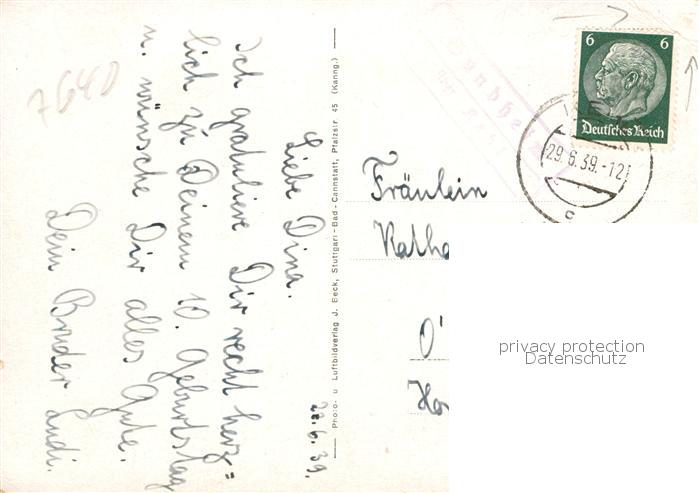 28.6.39.
Liebe Dina.
Ich gratuliere Dir recht herz=
lich zu Deinem 10. Geburtstag
u. wünsche Dir alles Gute.
Dein Bruder Ludi.
7640
Photo- u. Luftbildverlag J. Beck, Stuttgart-Bad-Cannstatt, Pfalzstr. 45 (Kanng.)
6 6
Deutsches Reich
29.6.39.-12
c
Fräulein
Katha
O'
privacy protection
Datenschutz